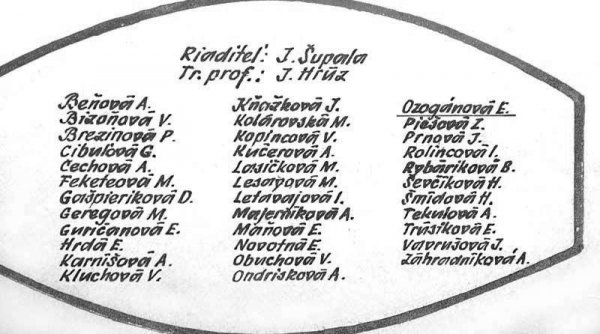 Riaditeľ: J. Šupala
Tr. prof.: J. Hrúz
Beňová A.
Bizoňová V.
Brezinová P.
Cibuľová G.
Čechová A.
Feketeová M.
Gašpieriková D.
Geregová M.
Guričanová E.
Hrdá E.
Karnišová A.
Kluchová V.
Kňažková J.
Kolárovská M.
Kopincová V.
Kučerová A.
Lasičková M.
Lesayová M.
Letavajová I.
Majerníková A.
Máňová E.
Novotná E.
Obuchová V.
Ondrisková A.
Ozogánová E.
Piešová Z.
Prnová J.
Rolincová I.
Rybáriková B.
Ševčíková H.
Šmidová H.
Tekulová A.
Trúsiková E.
Vavrušová J.
Záhradníková A.